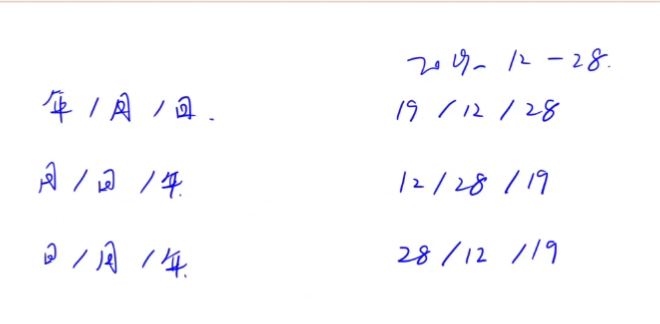 2019-12-28.
年/月/日. 19/12/28
月/日/年. 12/28/19
日/月/年. 28/12/19